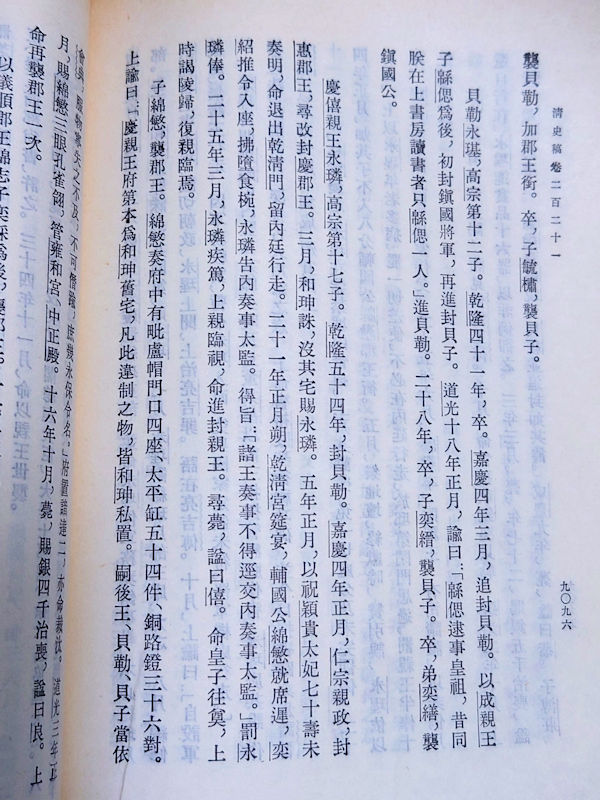 清史稿卷二百二十一
九〇九六
襲貝勒，加郡王銜。卒，子毓橚，襲貝子。
貝勒永璂，高宗第十二子。乾隆四十一年，卒。嘉慶四年三月，追封貝勒。以成親王
子緜偲爲後，初封鎭國將軍，再進封貝子。道光十八年正月，諭曰：「緜偲逮事皇祖，昔同
朕在上書房讀書者只緜偲一人。」進貝勒。二十八年，卒，子奕縉，襲貝子。卒，弟奕繕，襲
鎭國公。
慶僖親王永璘，高宗第十七子。乾隆五十四年，封貝勒。嘉慶四年正月，仁宗親政，封
惠郡王，尋改封慶郡王。三月，和珅誅，沒其宅賜永璘。五年正月，以祝穎貴太妃七十壽未
奏明，命退出乾清門，留內廷行走。二十一年正月朔，乾清宮筵宴，輔國公綿慜就席遲，奕
紹推令入座，拂墮食椀，永璘告內奏事太監。得旨：「諸王奏事不得逕交內奏事太監。」罰永
璘俸。二十五年三月，永璘疾篤，上親臨視，命進封親王。尋薨，諡曰僖。命皇子往奠，上
時謁陵歸，復親臨焉。
子綿慜，襲郡王。綿慜奏府中有毗盧帽門口四座、太平缸五十四件、銅路鐙三十六對。
上諭曰：「慶親王府第本爲和珅舊宅，凡此違制之物，皆和珅私置。嗣後王、貝勒、貝子當依
會典，服物寧失之不及，不可僭踰，庶幾永保令名。」府置諳達二，亦命裁汰。道光三年正
月，賜綿慜三眼孔雀翎，管雍和宮、中正殿。十六年十月，薨，賜銀四千治喪，諡曰良。上
命再襲郡王一次。
以儀順郡王綿志子奕綵爲後，襲郡王。